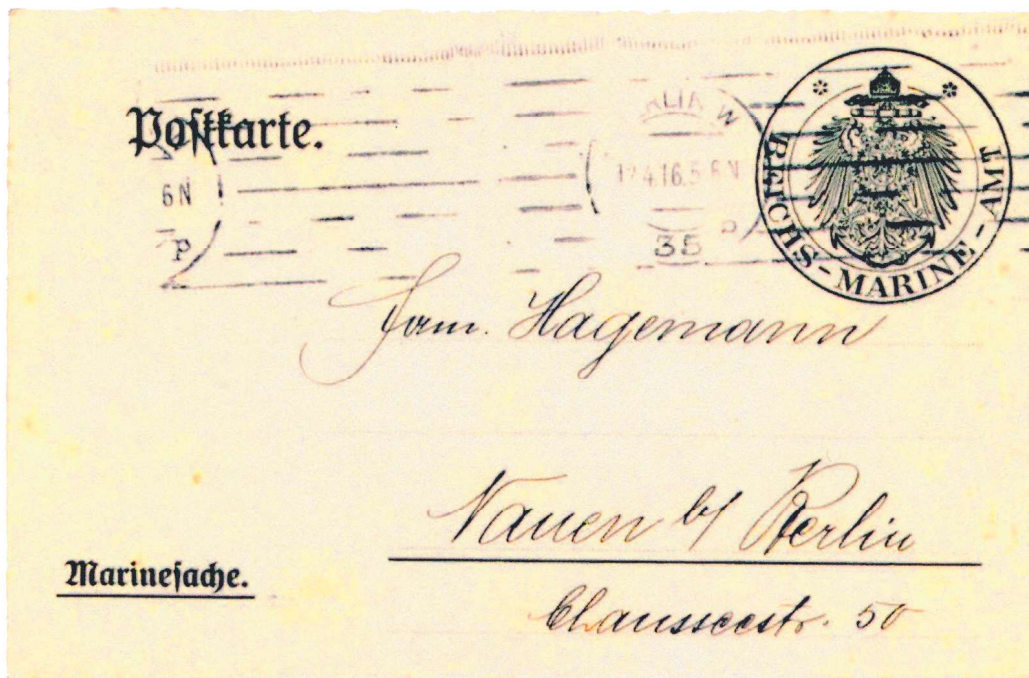 Postkarte.
6 N
P
W
12.4.16. 5-6 N
35
REICHS-MARINE-AMT
Hagemann
Nauen b/ Berlin
Marinesache.
Chausseestr. 50